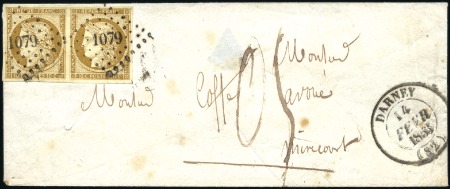 1079 1079
Monsieur
Monsieur Coffe avoué
Mirecourt
DARNEY
14
FEVR
1853
(82)